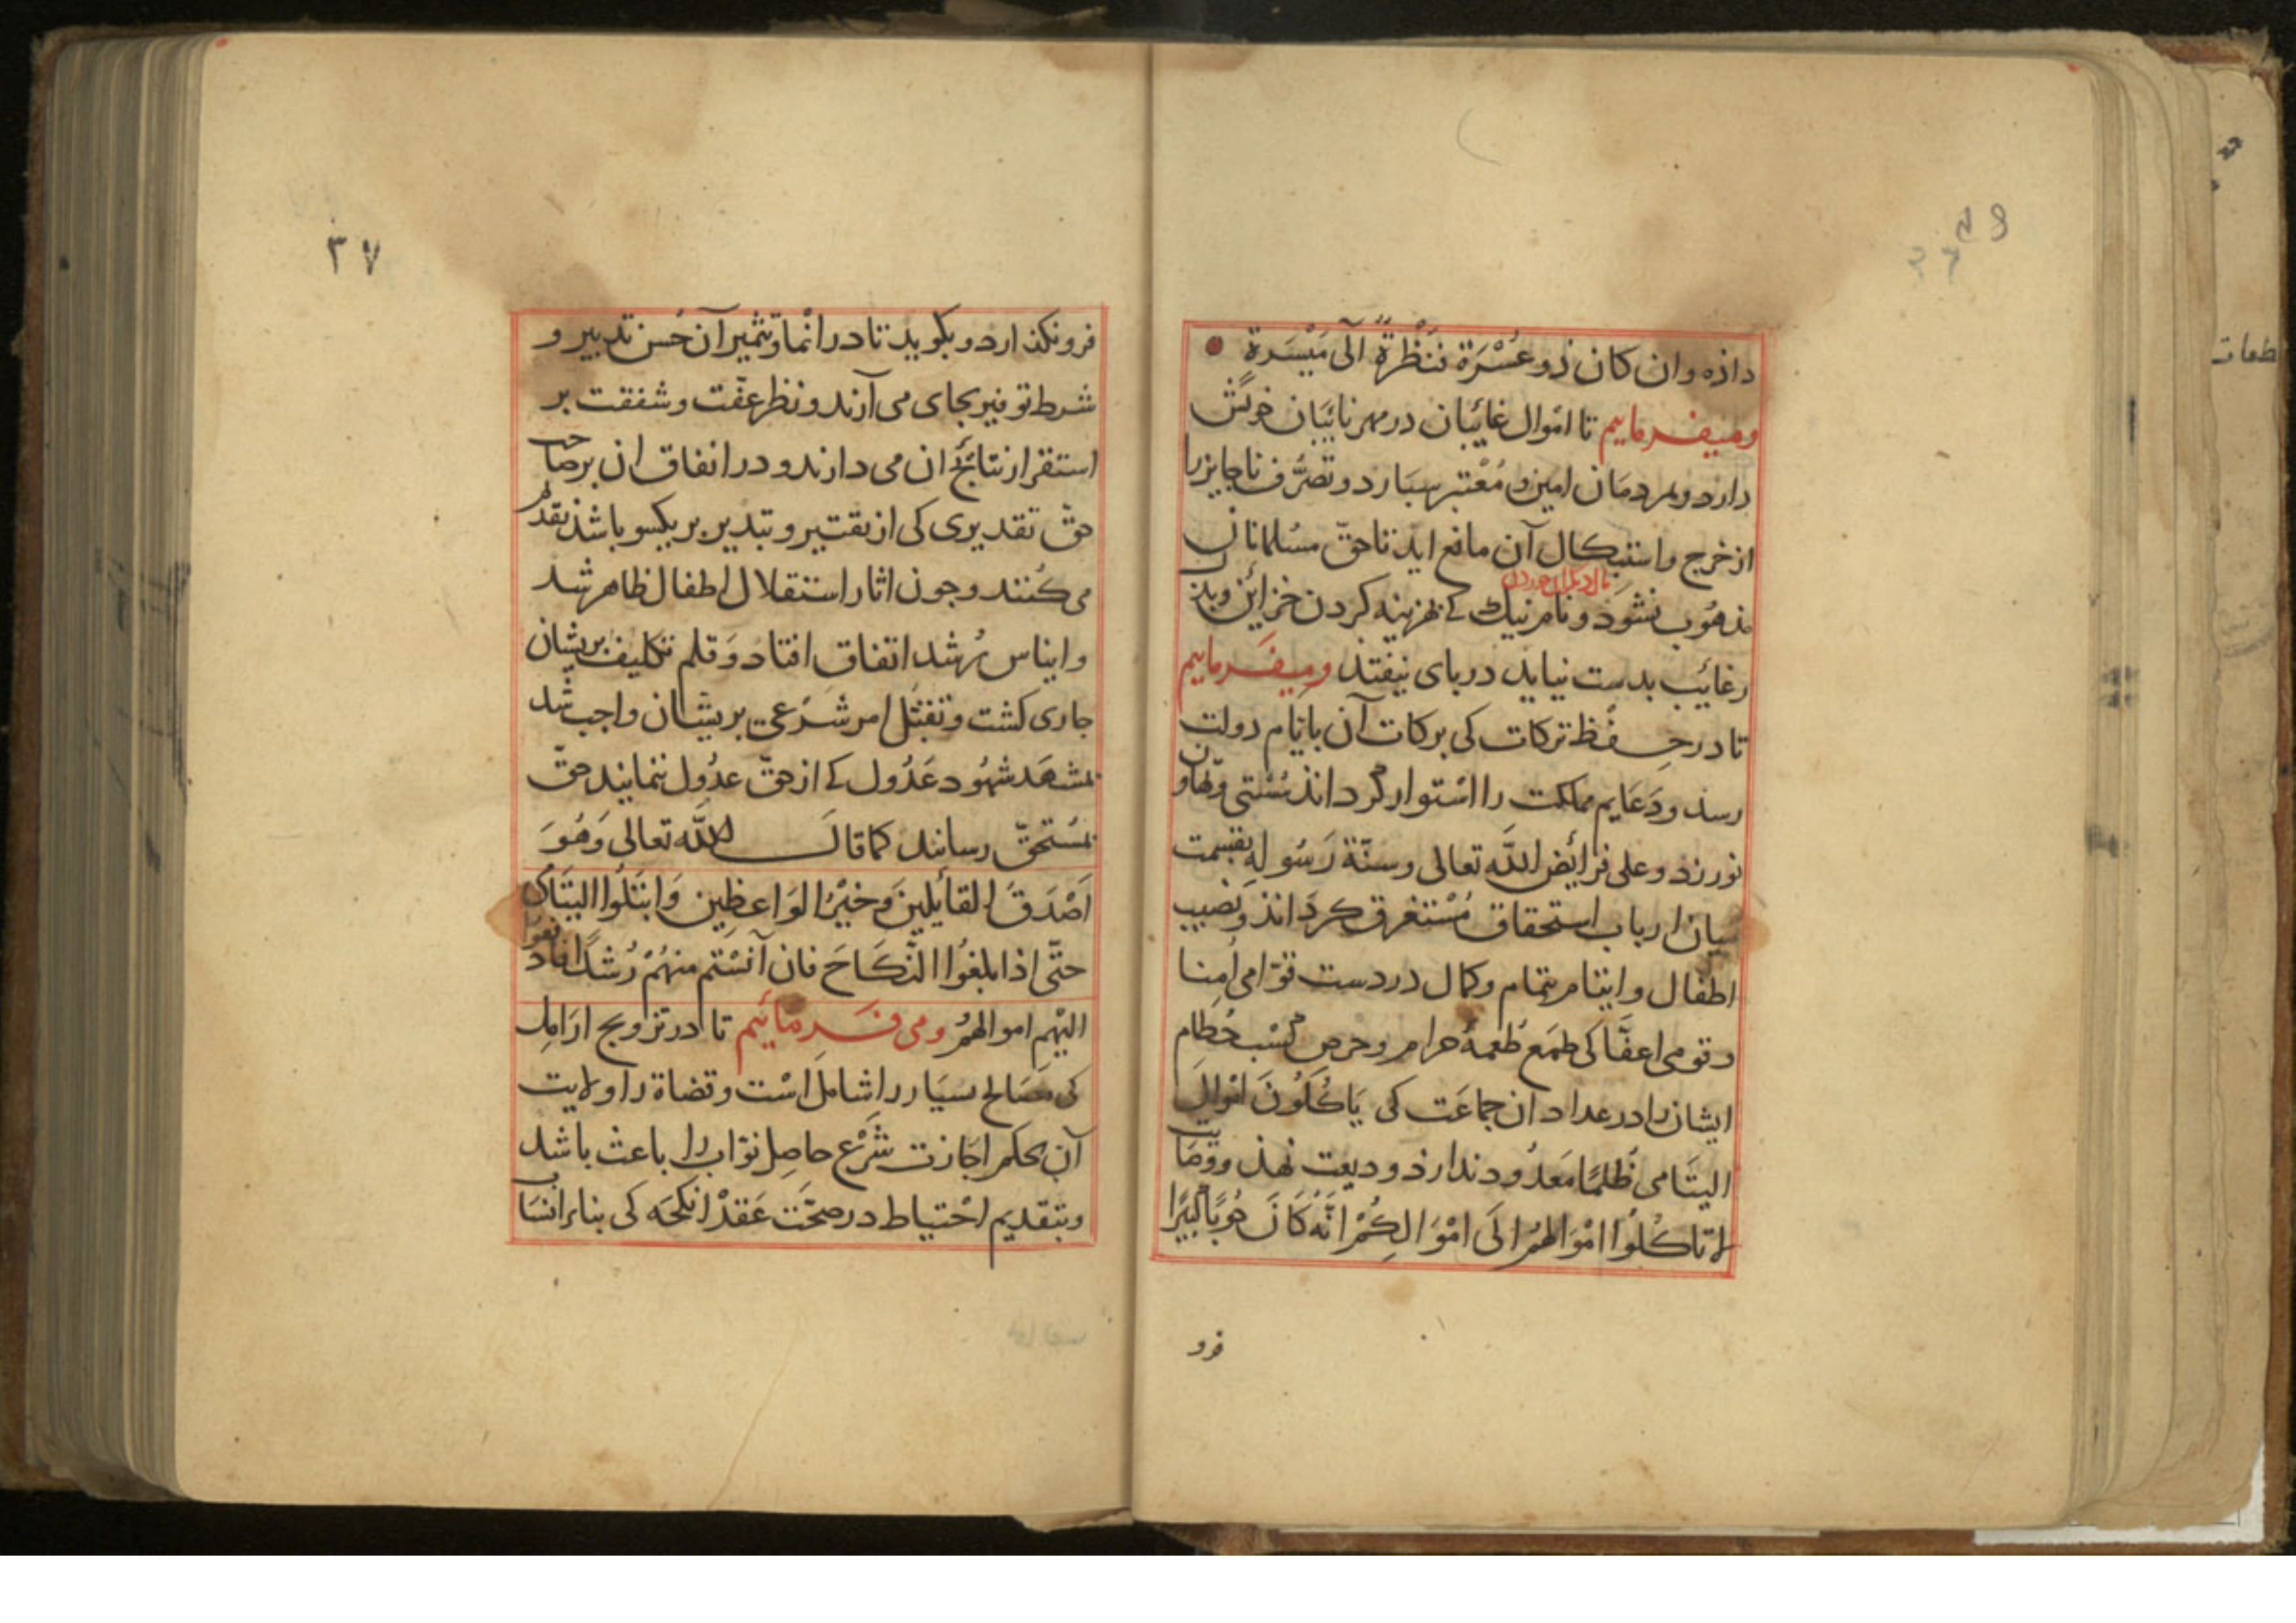 داذه وان كان ذو عُسْرَة فَنَظْرِةٌ الى مَيْسَرةٍ
وميفرماييم تا اموال غائبان در مهر نائبان خويش
دارد و بمردمان امين و مُعْتبر سپارد و تصرُّف ناجايز را
از خرج واستيكال آن مانع ايد تا حقّ مسُلمانان
مال ديكران خوردن
مذهُوب نشود و نام نيك كى بهزينه كردن خزائن وبذل
رغائب بدست نيايد در باى نيفتذ وميفرماييم
تا در حفظ تركات كى بركات آن بايّام دولت
رسد ودَعَايم مملكت را استوار كرداند سُستى وتهاون
نورزد وعلى فرائض الله تعالى وسنّة رَسُوله بقسمت
ميان ارباب استحقاق مُسْتغرق كرداند ونصيب
اطفال وايتام بتمام وكمال در دست قوّامى اُمنا
وقومى اعفّا كى طمَع طُعمهٔ حرام وحرص كسْب حُطام
ايشان را در عداد ان جماعَت كى يَاكُلُونَ امْوالَ
اليتَامى ظُلمًا مَعدُود ندارذ وديعت نهذ ووصَايت
لا تاكُلُوا امْوَالهُمْ الَى امْوَالِكُمْ انّهُ كَانَ حُوبًا كَبيرًا
فرو
٣٧
فرو نكذارد وبكويد تا در انما وتثمير آن حُسن تدبير و
شرط توفير بجاى مى آرند ونظر عفّت وشفقت بر
استقرار نتائج ان مى دارند و در انفاق ان بر صاحب
حقّ تقديرى كى از تقتير و تبذير بر يكسو باشد تقديم
مى كُنند وجون اثار استقلال اطفال ظاهر شد
وايناس رُشد اتفاق افتاد وَقلم تكليف بريشان
جارى كشت وتقبّل امر شَرْعى بريشان واجب شد
بمشهَد شهُود عَدُول كى از حقّ عدُول ننمايند حقّ
بمُستحقّ رسانند كما قالَ الله تعالى وَهُوَ
اَصْدَقَ القائلِينَ وَخيْرُ الوَاعظِين وَابتَلُوا اليتَامى
حتّى اذا بلغُوا النّكَاحَ فان آنَسْتم منهُمْ رُشدًا فادفعوا
اليْهِم اموالهمُ ومى فرمائيم تا در تزويج ارَامِل
كى مصَالح بسيَار را شامل است وقضاة را ولايت
آن بحكم اجَازت شَرْع حاصِل نوّاب را باعث باشد
وبتقديم احْتياط در صحّتَ عَقدْ انكحَه كى بناء انسَاب